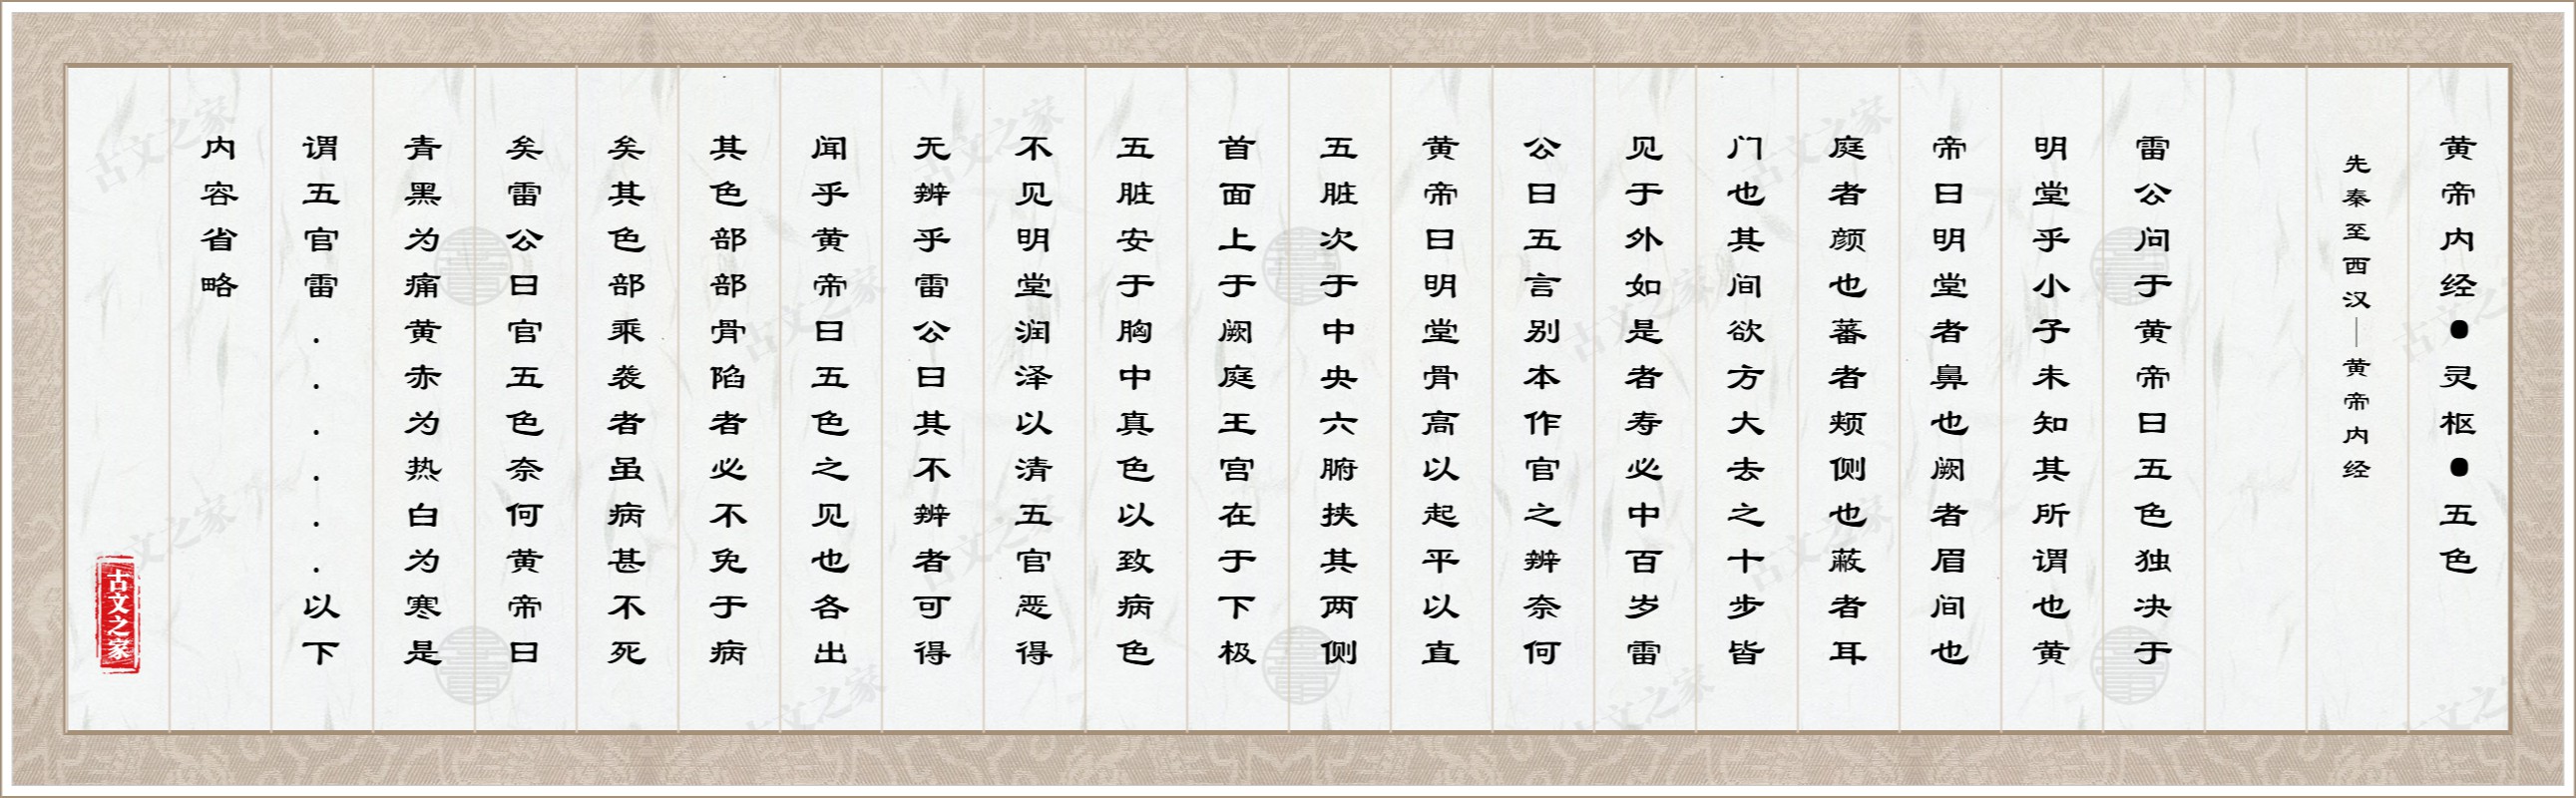 黄帝内经●灵枢●五色
先秦至西汉｜黄帝内经
雷公问于黄帝曰五色独决于
明堂乎小子未知其所谓也黄
帝曰明堂者鼻也阙者眉间也
庭者颜也蕃者颊侧也蔽者耳
门也其间欲方大去之十步皆
见于外如是者寿必中百岁雷
公曰五言别本作官之辨奈何
黄帝曰明堂骨高以起平以直
五脏次于中央六腑挟其两侧
首面上于阙庭王宫在于下极
五脏安于胸中真色以致病色
不见明堂润泽以清五官恶得
无辨乎雷公曰其不辨者可得
闻乎黄帝曰五色之见也各出
其色部部骨陷者必不免于病
矣其色部乘袭者虽病甚不死
矣雷公曰官五色奈何黄帝曰
青黑为痛黄赤为热白为寒是
谓五官雷......以下
内容省略
古文之家